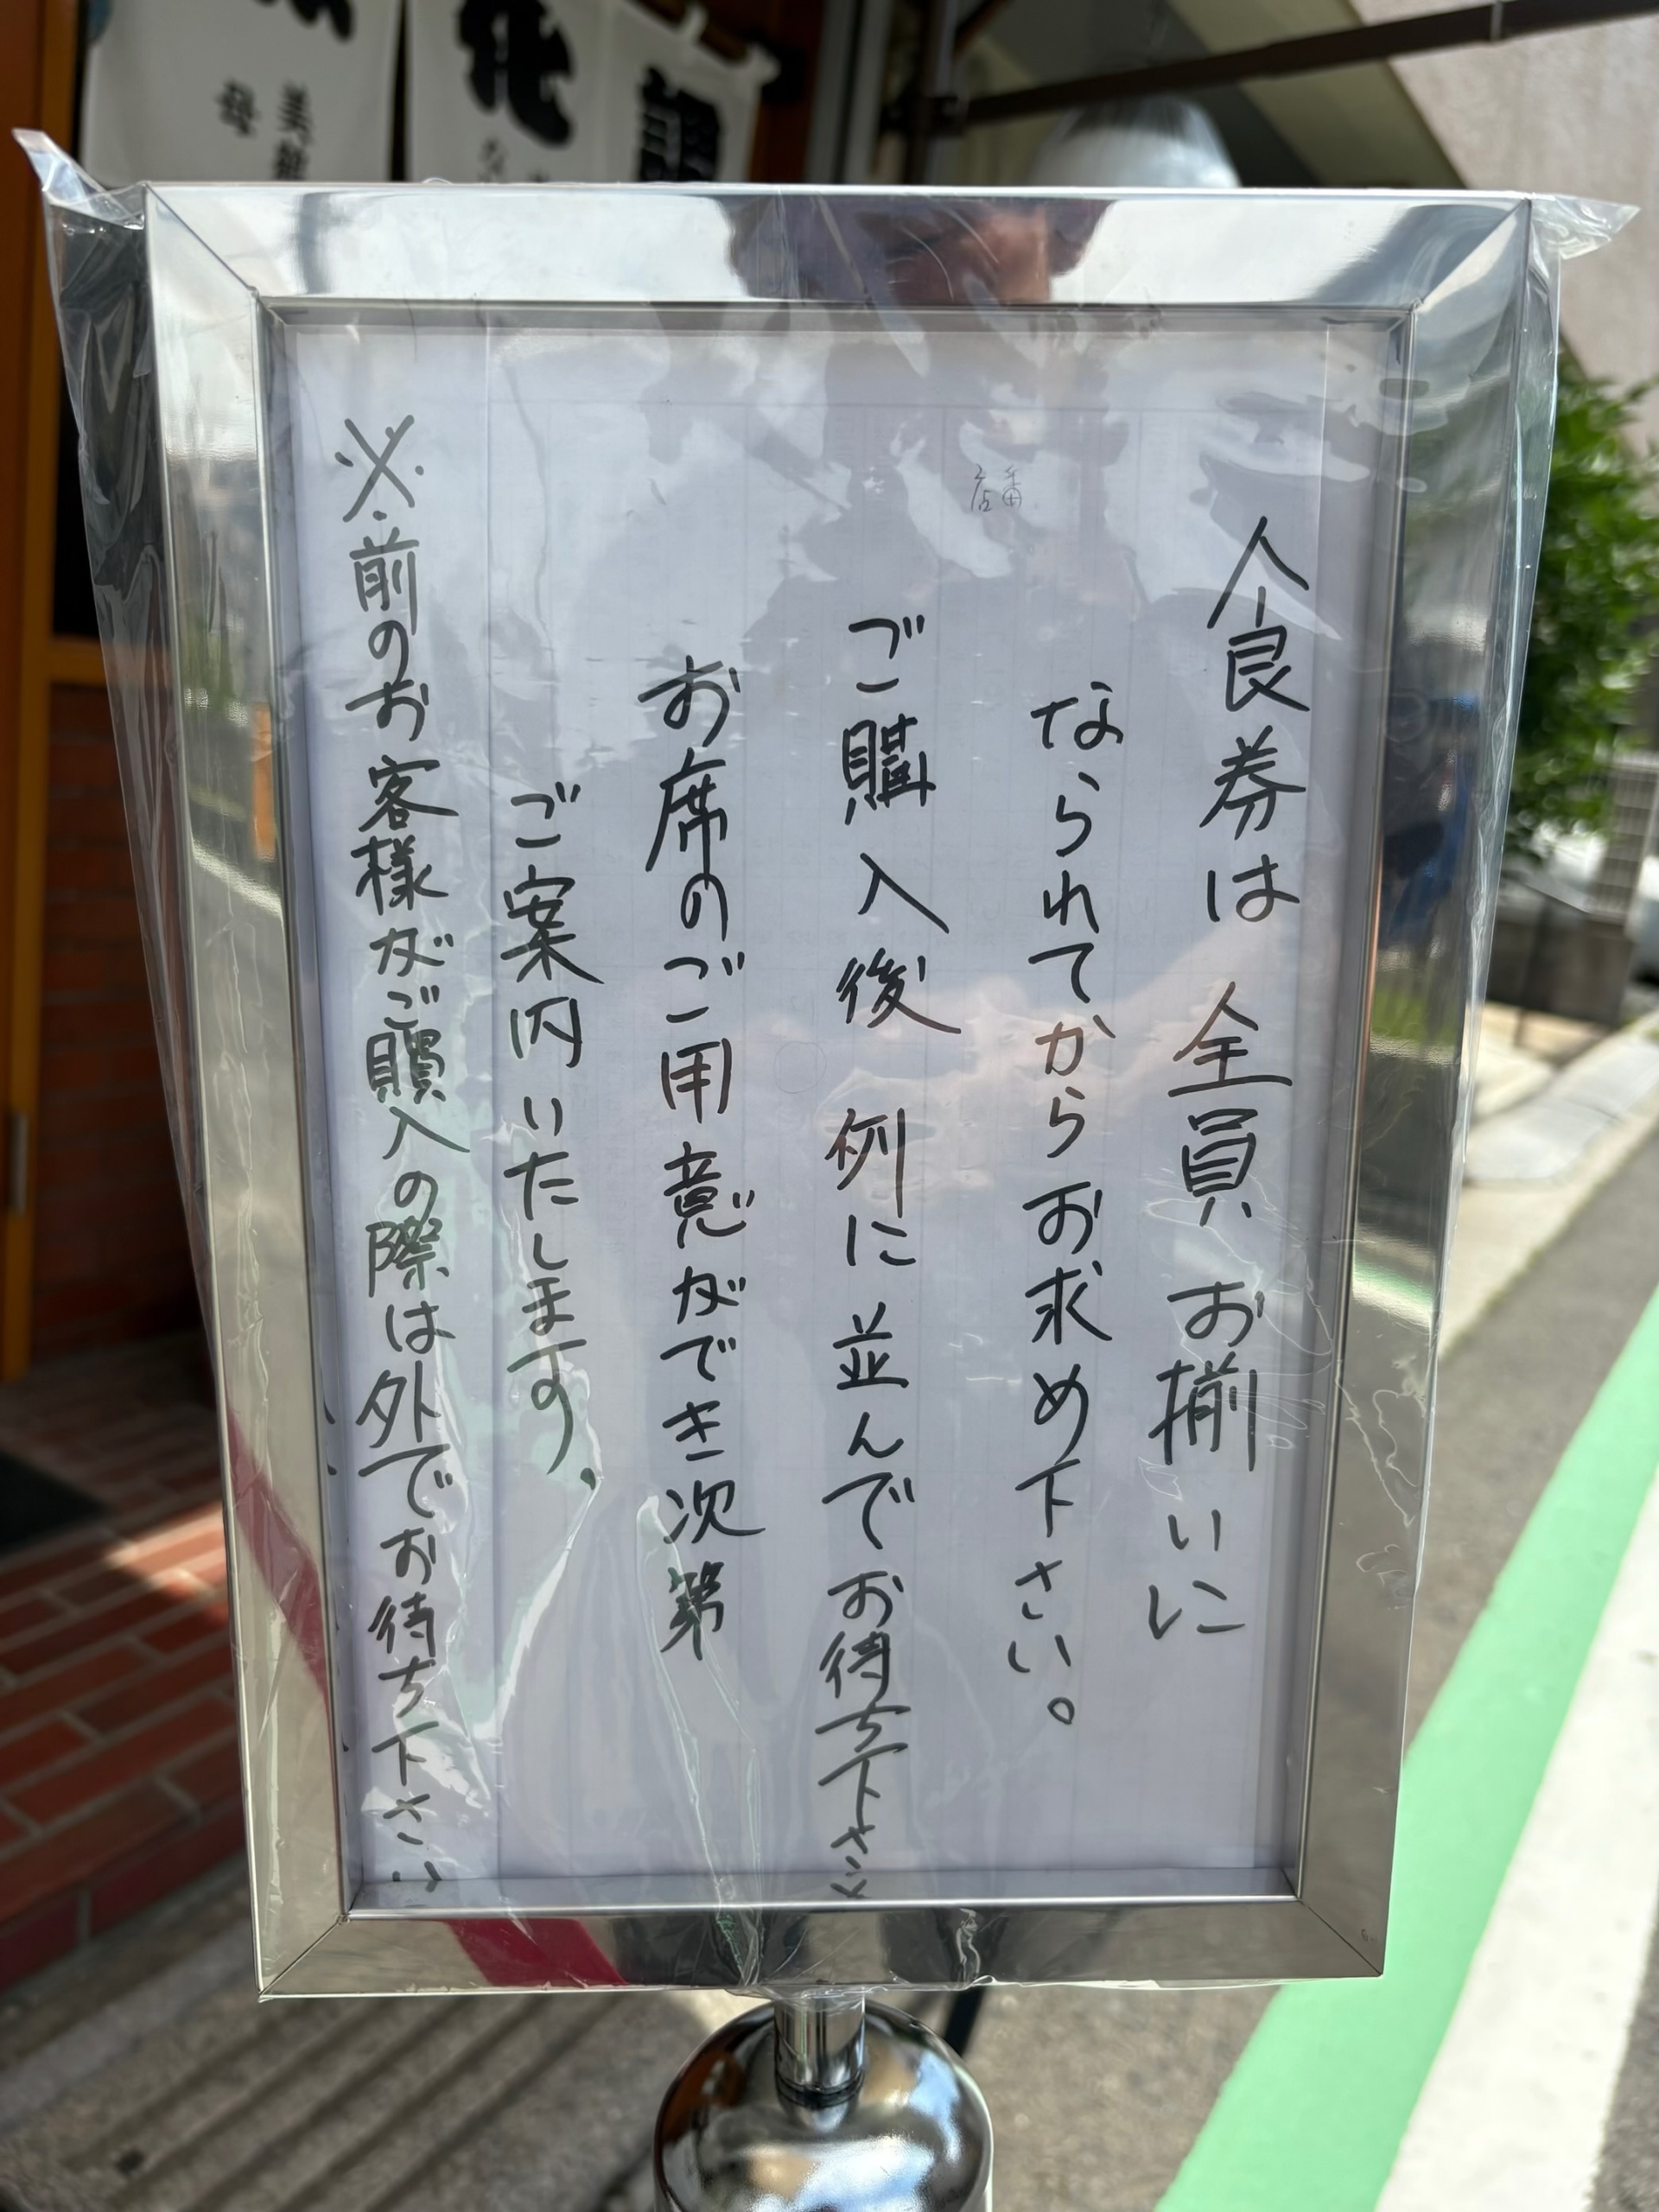 食券は 全員 お揃いに
なられてからお求め下さい。
ご購入後 例に並んでお待ち下さい
お席のご用意ができ次第
ご案内いたします、
※前のお客様がご購入の際は外でお待ち下さい
店番